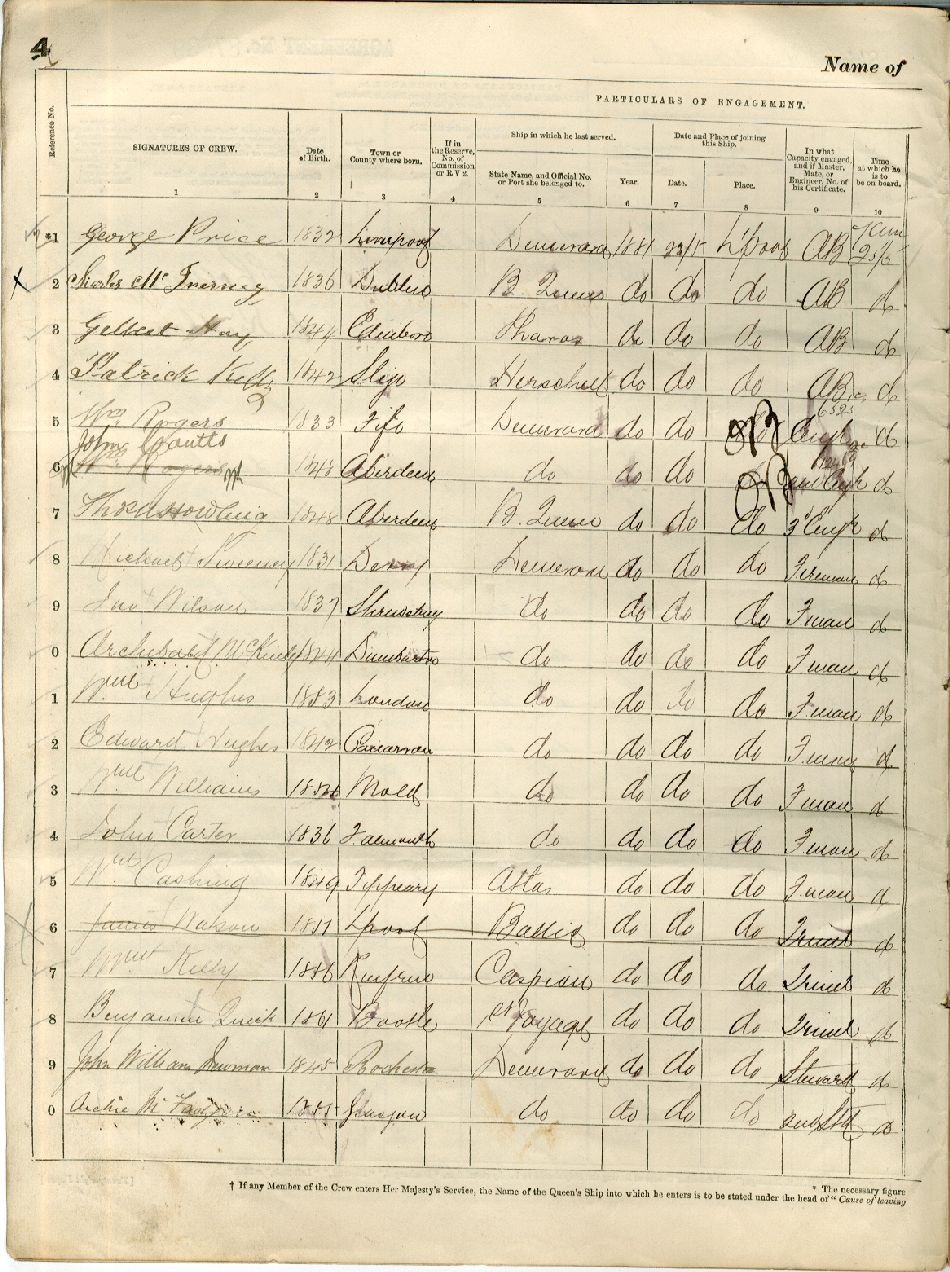 4
Name of
PARTICULARS OF ENGAGEMENT.
Reference No.
SIGNATURES OF CREW.
Date of Birth.
Town or County where born.
If in the Reserve, No. of Commission or R V 2.
Ship in which he last served.
State Name, and Official No. or Port she belonged to.
Year.
Date and Place of joining this Ship.
Date.
Place.
In what Capacity engaged, and if Master, Mate, or Engineer, No. of his Certificate.
Time at which he is to be on board.
1 2 3 4 5 6 7 8 9 10
1 George Price 1832 Liverpool Demerara 1881 L'pool AB
2 Charles Mc 1836 Dublin B. Queen do do do AB do
3 Gilbert Hay 1844 Edinboro Pharos do do do AB do
4 Patrick Kelly 1842 Sligo Herschell do do do AB do
5 Wm Rogers 1833 Fife Demerara do do do do
John Coutts
6 Wm Rogers 1848 Aberdeen do do do do
7 Thos 1848 Aberdeen B. Queen do do do do
8 Michael 1831 Derry Demerara do do do Fireman do
9 Jno Wilson 1837 Shrewsbury do do do do F'man do
0 Archibald 1844 Dumbarton do do do do F'man do
1 Wm Hughes 1853 London do do do do F'man do
2 Edward Hughes 1842 Carnarvon do do do do F'man do
3 Wm Williams Mold do do do do F'man do
4 John Carter 1836 Falmouth do do do do F'man do
5 Wm Cashing 1849 Tipperary Atlas do do do F'man do
6 James Watson L'pool Baltic do do do do
7 Kelly Renfrew Caspian do do do do
8 Benjamin Quick 1861 Bootle 1st Voyage do do do do
9 John William Newman 1845 Rochester Demerara do do do Steward do
0 Archie Glasgow do do do do do
† If any Member of the Crew enters Her Majesty's Service, the Name of the Queen's Ship into which he enters is to be stated under the head of "Cause of leaving
* The necessary figure